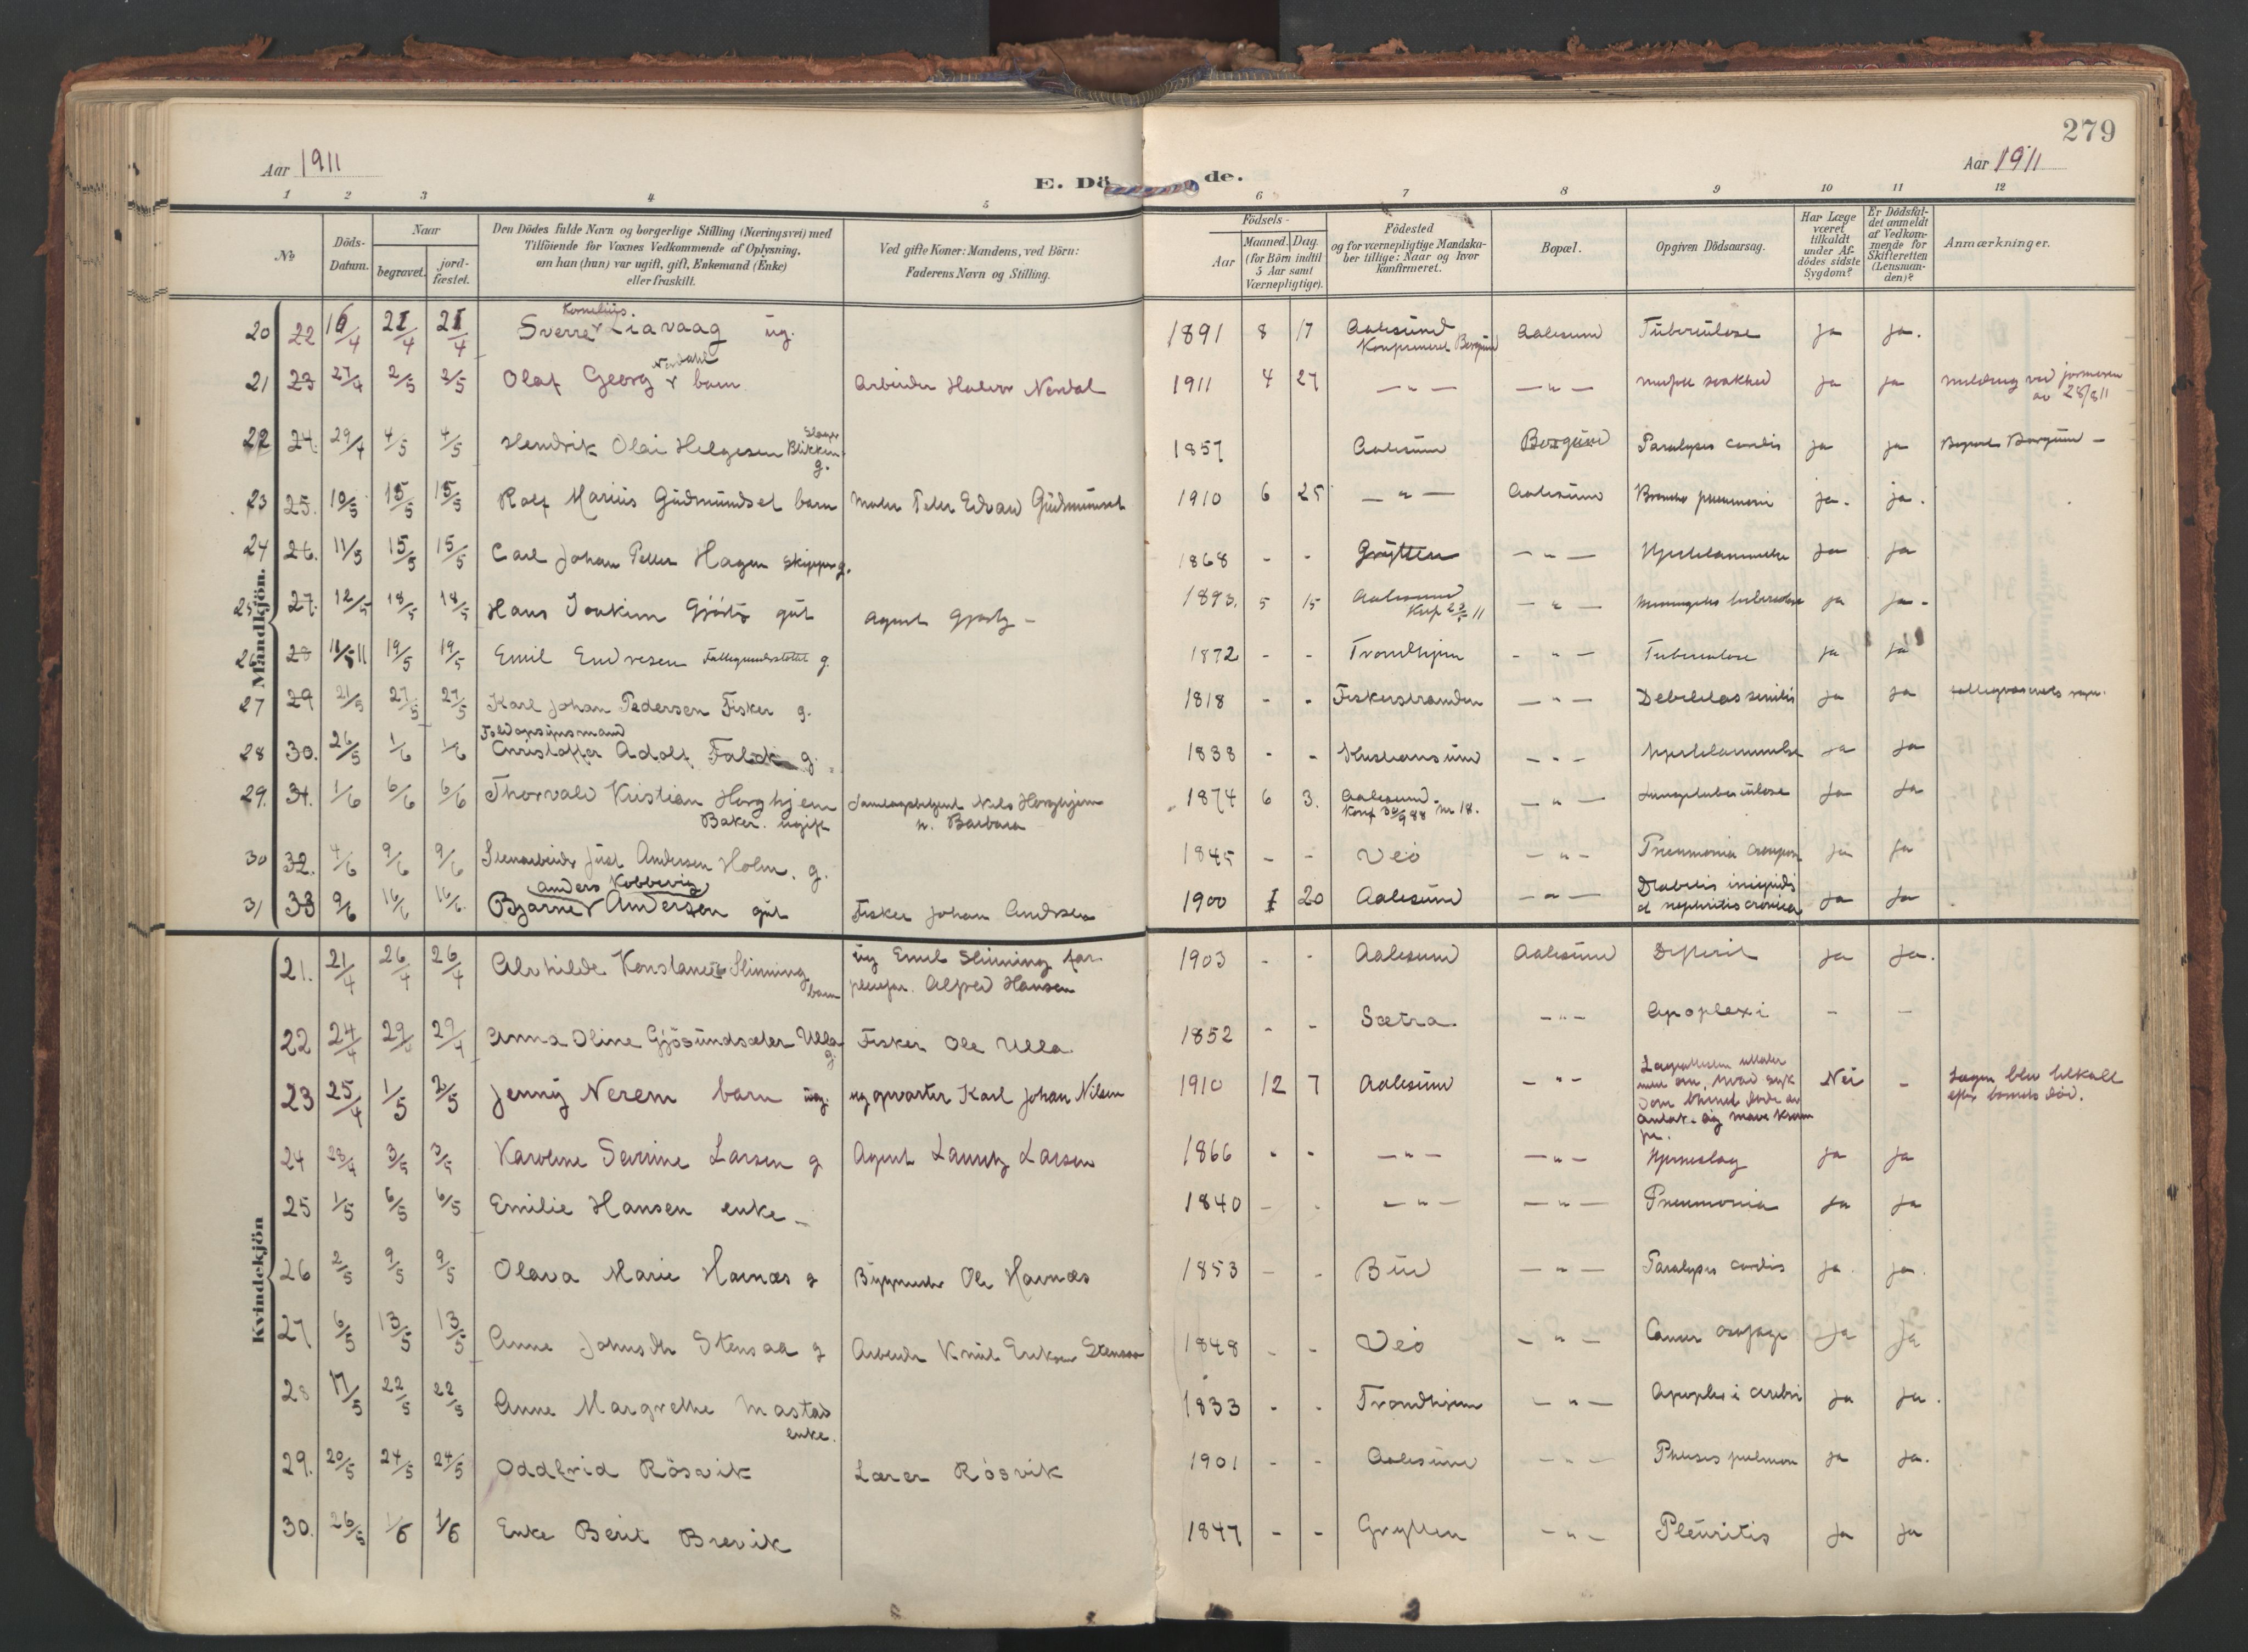 279
Aar 1911
E. Dö de.
Aar 1911
1 2 3 4 5 6 7 8 9 10 11 12
No
Döds-Datum.
Naar
begravet.
jord-fæstet.
Den Dödes fulde Navn og borgerlige Stilling (Næringsvei) med
Tilföiende for Voxnes Vedkommende af Oplysning,
om han (hun) var ugift, gift, Enkemand (Enke)
eller fraskilt.
Ved gifte Koner: Mandens, ved Börn:
Faderens Navn og Stilling.
Födsels-
Aar
Maaned. Dag.
(for Börn indtil
5 Aar samt
Værnepligtige).
Födested
og for værnepligtige Mandska-
ber tillige: Naar og hvor
konfirmeret.
Bopæl.
Opgiven Dödsaarsag.
Har Læge
været
tilkaldt
under Af-
dödes sidste
Sygdom?
Er Dödsfal-
det anmeldt
af Vedkom-
mende for
Skifteretten
(Lensman-
den)?
Anmærkninger.
Mandkjön.
20 22 16/4 21/4 21/4 Sverre Kornelius Liavaag ug. 1891 8 17 Aalesund Konfirmeret Borgund Aalesund Tuberkulose ja ja.
21 23 27/4 2/5 2/5 Olaf Georg Nerdahl barn Arbeider Halvor Nerdal 1911 4 27 — " — — " — medfødt svakhed ja ja
22 24. 29/4 4/5 4/5 Hendrik Olai Helgesen Blikkenslager g. 1857 Aalesund Borgund Paralysis cordis ja ja Borgund —
23 25. 10/5 15/5 15/5 Rolf Marius Gudmundset barn Maler Peter Edvard Gudmundset 1910 6 25 — " — Aalesund Broncho pneumoni ja. ja.
24 26. 11/5 15/5 15/5 Carl Johan Petter Hagen skipper g. 1868 - - Grytten — " — Hjertelammelse ja ja
25 27. 12/5 18/5 18/5 Hans Joakim Gjørtz gut Agent Gjørtz — 1893. 5 15 Aalesund — " — ja ja.
26 28 11/5 11 19/5 19/5 Emil Endresen g. 1872 - - Trondhjem - " - Tuberculose ja ja
27 29 21/5 27/5 27/5 Karl Johan Pedersen Fisker g. 1818 - - Fiskerstranden — " — Debilitas senilis ja ja
28 30. 26/5 1/6 1/6 Toldopsynsmand Christoffer Adolf Falck g. 1838 - - Kristiansund - " - Hjertelammelse ja ja
29. 31. 1/6 6/6 6/6 Thorvald Kristian Horghjem Baker. ugift Nils Horghjem h. Barbara 1874 6 3. Aalesund. Konf 30/9 88 nr 18. — " — Lungetuberkulose ja ja
30 32. 4/6 9/6 9/6 Stenarbeider Just Andersen Holm. g. 1845 - - Veö - " - Pneumonia ja ja
31 33 9/6 16/6 16/6 Bjarne (Anders Kobbevig) Andersen gut Fisker Johan Andersen 1900 1 20 Aalesund - " - Diabetis insipids et nephritis cronica ja ja
Kvindekjön
21. 21/4 26/4 26/4 Alvhilde Konstance Slinning barn ug Emil Slinning far. plejefar. Alfred Hansen 1903 - - Aalesund Aalesund Difterit ja ja.
22 24/4 29/4 29/4 Anna Oline Gjøsundsæter Ulla g. Fisker Ole Ulla. 1852 - - Sætra. - " - Apoplexi - -
23 25/4 1/5 2/5 Jenny Nerem barn ug. Karl Johan Nilsen 1910 12 7 Aalesund - " - Nei - Lægen blev tilkalt efter barnets død.
24 28/4 3/5 3/5 Karoline Severine Larsen g Agent Lauritz Larsen 1866 - - — " — — " — Hjerneslag ja ja
25 1/5 6/5 6/5 Emilie Hansen enke — 1840 - - — " — — " — Pneumonia ja ja
26 2/5 9/5 9/5 Olava Marie Havnæs g Ole Havnæs 1853 - - Bud — " — Paralysis cordis ja. ja.
27 6/5 13/5 13/5 Anne Johnsdtr Stensaa g Arbeider Knut Eriksen Stensaa 1848 - - Veö - " - Cancer ja ja
28 17/5 22/5 22/5 Anne Margrethe Mastad enke. 1833 - - Trondhjem - " - Apoplexi cerebri ja ja.
29. 20/5 24/5 24/5 Oddfrid Røsvik Lærer Røsvik 1901 - - Aalesund - " - Phtisis pulmon ja ja.
30. 26/5 1/6 1/6 Enke Berit Brevik 1847 - - Grytten - " - Pleuritis ja ja